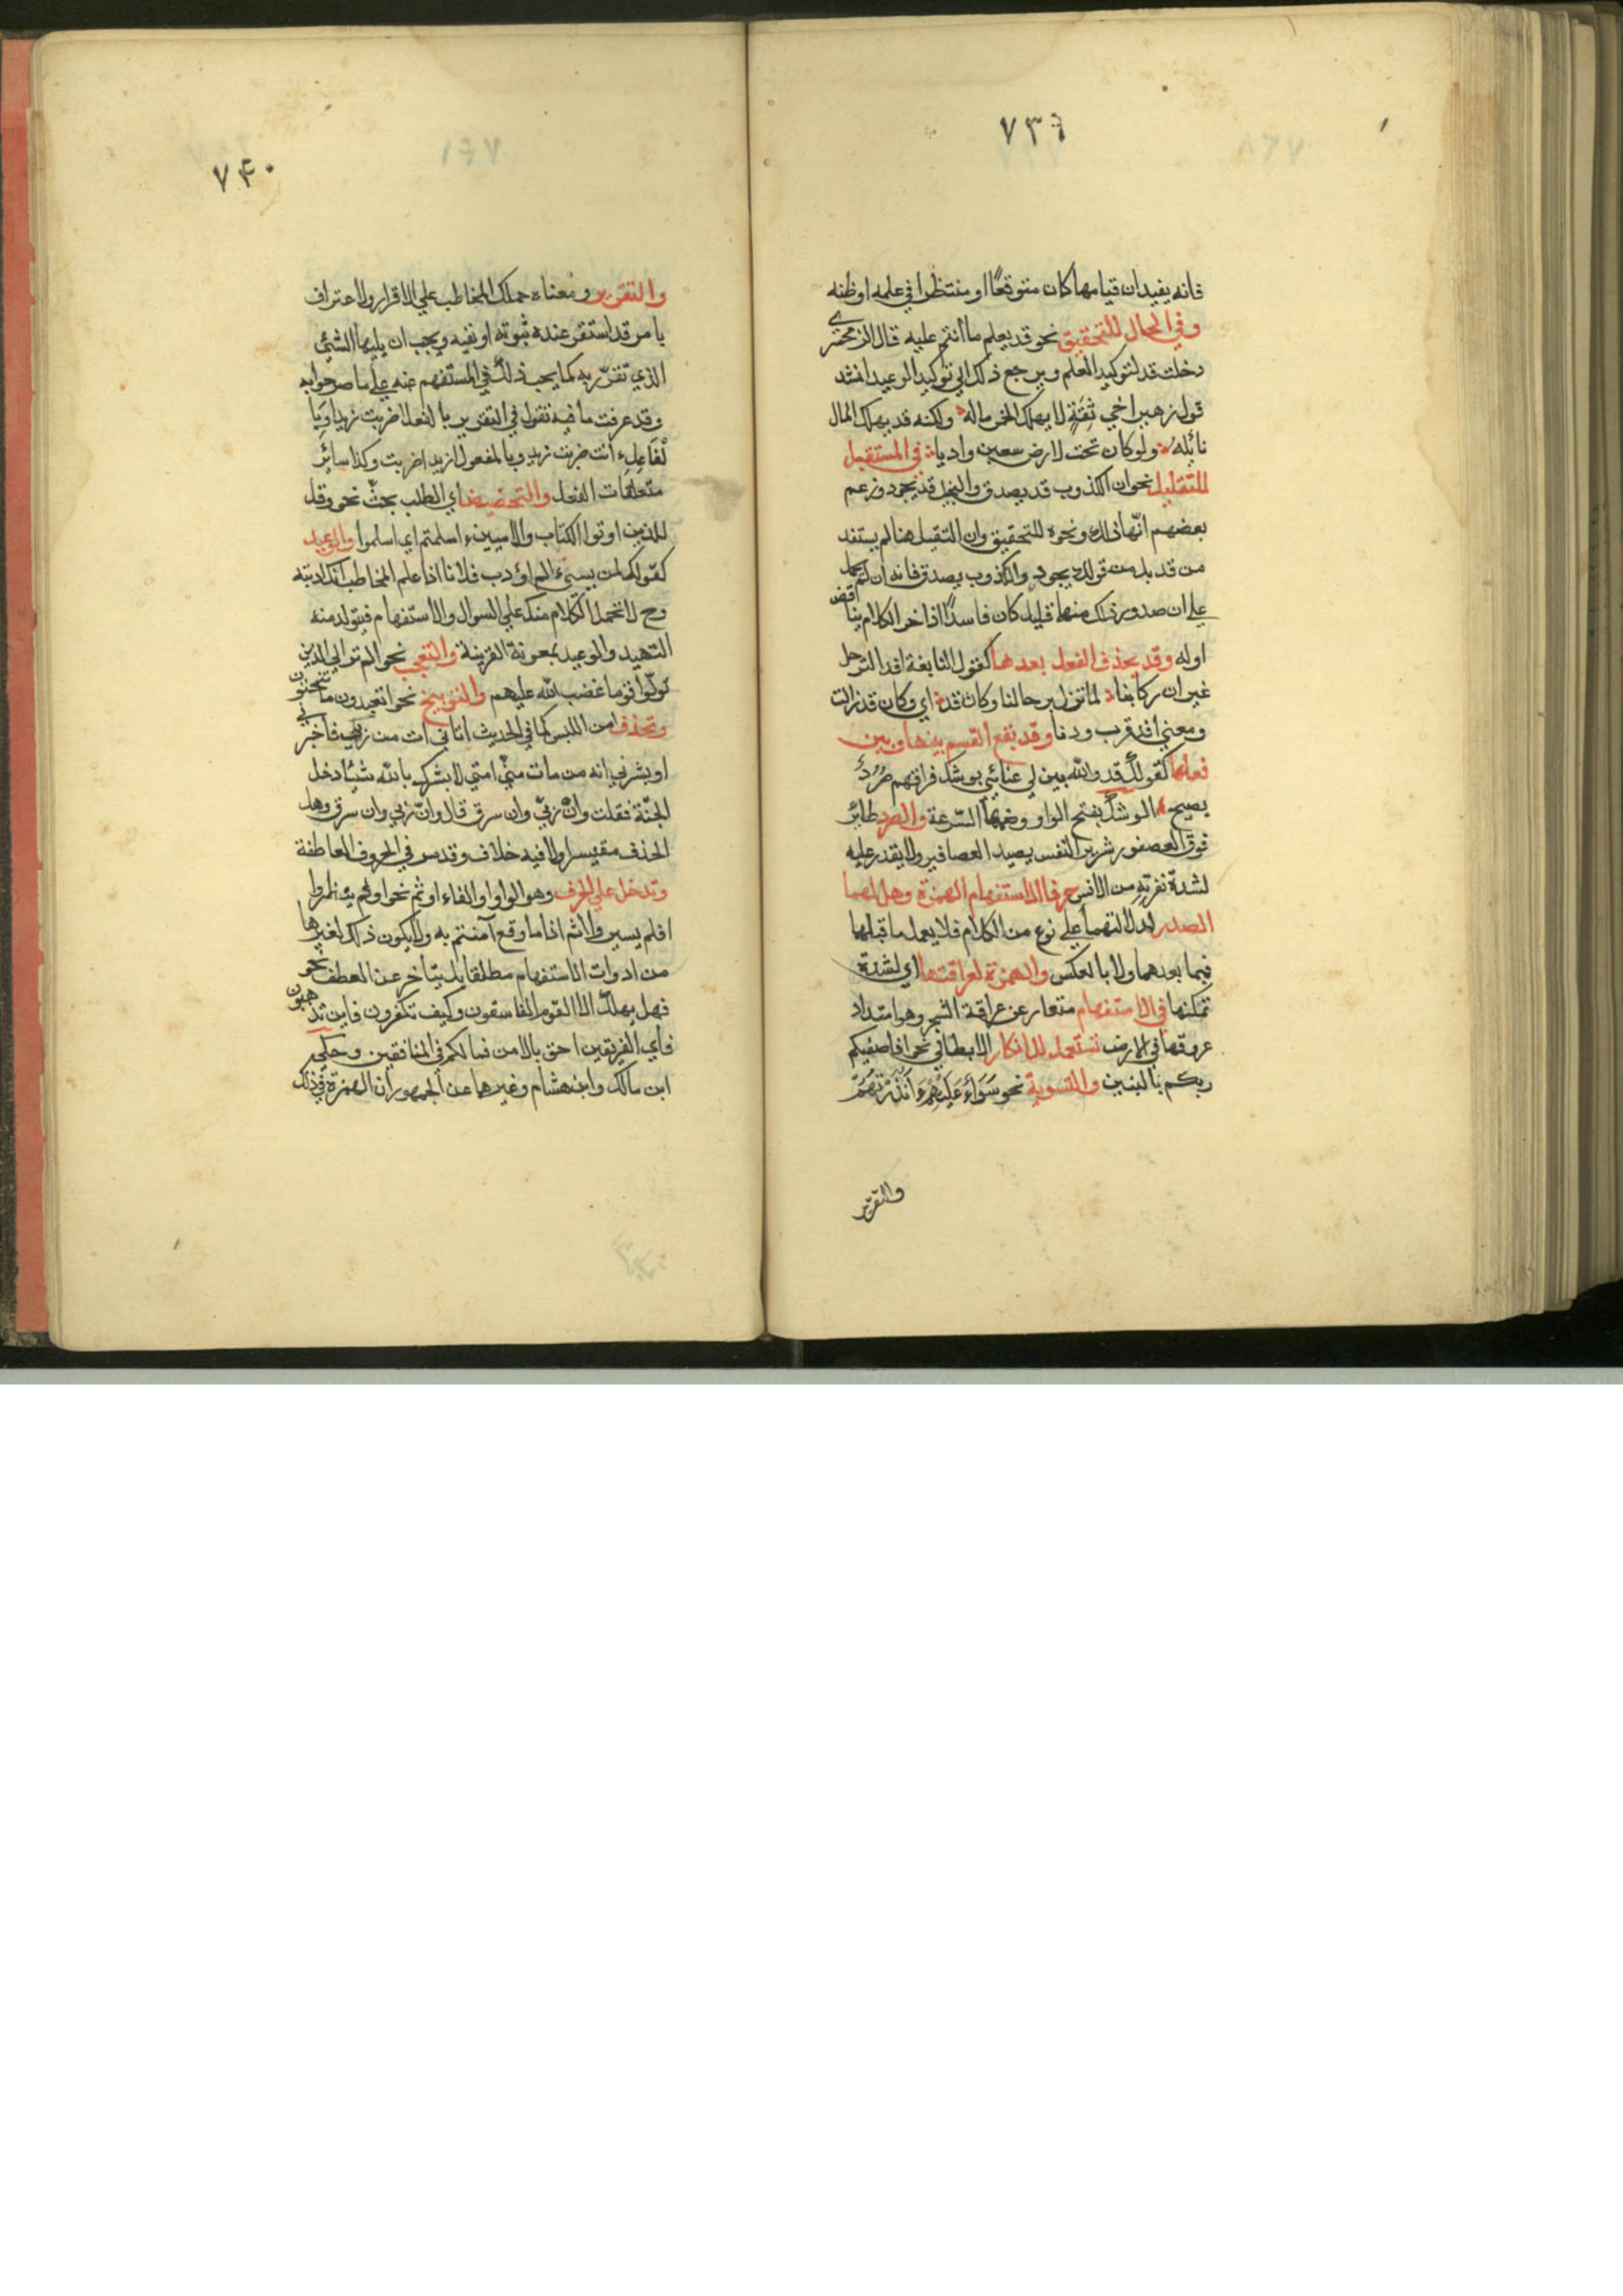 ٧٣٩
فانه يفيد ان قيامها كان متوقعًا او منتظرا في علمه او ظنه
وفي الحال للتحقيق نحو قد يعلم ما انتم عليه قال الزمخشري
دخلت قد لتوكيد العلم ويرجع ذلك الي توكيد الوعيد انشد
قول زهير اخي ثقة لا يهلك الخمر ماله ولكنه قد يهلك المال
نائله ولو كان تحت لارض سعين واديا في المستقبل
للتقليل نحو ان الكذوب قد يصدق والبخيل قد يجود وزعم
بعضهم انّها في ذلك ونحوه للتحقيق وان التقيل هنا لم يستفد
من قد بل من قولك يجود والكذوب يصدق فانه ان لم يحمل
علي ان صدور ذلك منهما قليل كان فاسدًا اذ اخر الكلام يناقض
اوله وقد يحذف الفعل بعدها كقول النابغة افد الترحل
غير ان ركابنا لما تزل برحالنا وكان قد اي وكان قد زالت
ومعني افد قرب ودنا وقد يقع القسم بينها وبين
فعلها كقولك قد والله بين لي عنائي بوشك فراقهم صُرَدٌ
يصيح الوشك بفتح الواو وضمها السّرعة والصرد طائر
فوق العصفور شرير النفس يصيد العصافير ولا يقدر عليه
لشدة نفرته من الانس حرفا الاستفهام الهمزة وهل لهما
الصدر لدلالتهما علي نوع من الكلام فلا يعمل ما قبلها
فيما بعدهما ولا بالعكس والهمزة لعراقتها اي لشدة
تمكنها في الاستفهام متعار عن عراقة الشجر وهو امتداد
عروقها في الارض تستعمل للانكار الابطاني نحو افاصفيكم
ربكم بالبنين والتسوية نحو سَوَاءٌ عَلَيْهِمْ ءَاَنْذَرْتَهُمْ
والتقرير
٧٤٠
والتقرير ومعناه حملك المخاطب علي الاقرار والاعتراف
بامر قد استقر عنده ثبوته او نفيه ويجب ان يليها الشئي
الذي تقرّر به كما يجب ذلك في المستفهم عنه علي ما صرحوا به
وقد عرفت ما فيه تقول في التقرير بالفعل اضربت زيدا وبا
لفاعل ءانت ضربت زيد وبالمفعول ازيدا ضربت وكذا سائر
متعلقات الفعل والتحضيض اي الطلب بحثّ نحو وقل
للذين اوتوا الكتاب والاميين ءاسلمتم اي اسلموا والوعيد
كقولك لمن يسيء الم اؤدب فلانا اذا علم المخاطب انك ادبته
وح لا تحمل الكلام منك علي السوال والاستفهام فيتولد منه
التهيد والوعيد بمعونة القرينة والتعجب نحو الم تر الي الذين
تولّوا قوما غضب الله عليهم والتوبيخ نحو اتعبدون ما تنحتون
وتحذف امن اللبس كما في الحديث اتاني ات من ربّي فاخبرني
او بشرني انه من مات من امتي لا يشرك بالله شيئا دخل
الجنّة فقلت وان زنيّ وان سرق قال وانّ زني وان سرق وهل
الحذف مقيس اولا فيه خلاف وقد مر في الحروف العاطفة
وتدخل علي الحرف وهو الواو او الفاء او ثم نحو اولم ينظروا
افلم يسير والاثم اذا ما وقع آمنتم به ولا يكون ذلك لغيرها
من ادوات الاستفهام مطلقا بل يتاخر عن العطف نحو
فهل يهلك الا القوم الفاسقون وكيف تكفرون فاين تذهبون
فاي الفريقين احق بالامن فما لكم في المنافقين وحكي
ابن مالك وابن هشام وغيرهما عن الجمهور ان الهمزة في ذلك